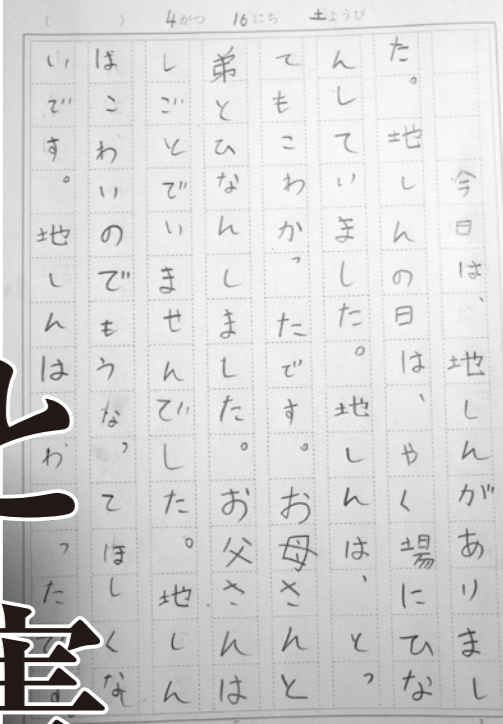 ( ) 4がつ 16にち 土ようび
今日は、地しんがありまし
た。地しんの日は、やく場にひな
んしていました。地しんは、とっ
てもこわかったです。お母さんと
弟とひなんしました。お父さんは
しごとでいませんでした。地しん
はこわいのでもうなってほしくな
いです。地しんは わ った